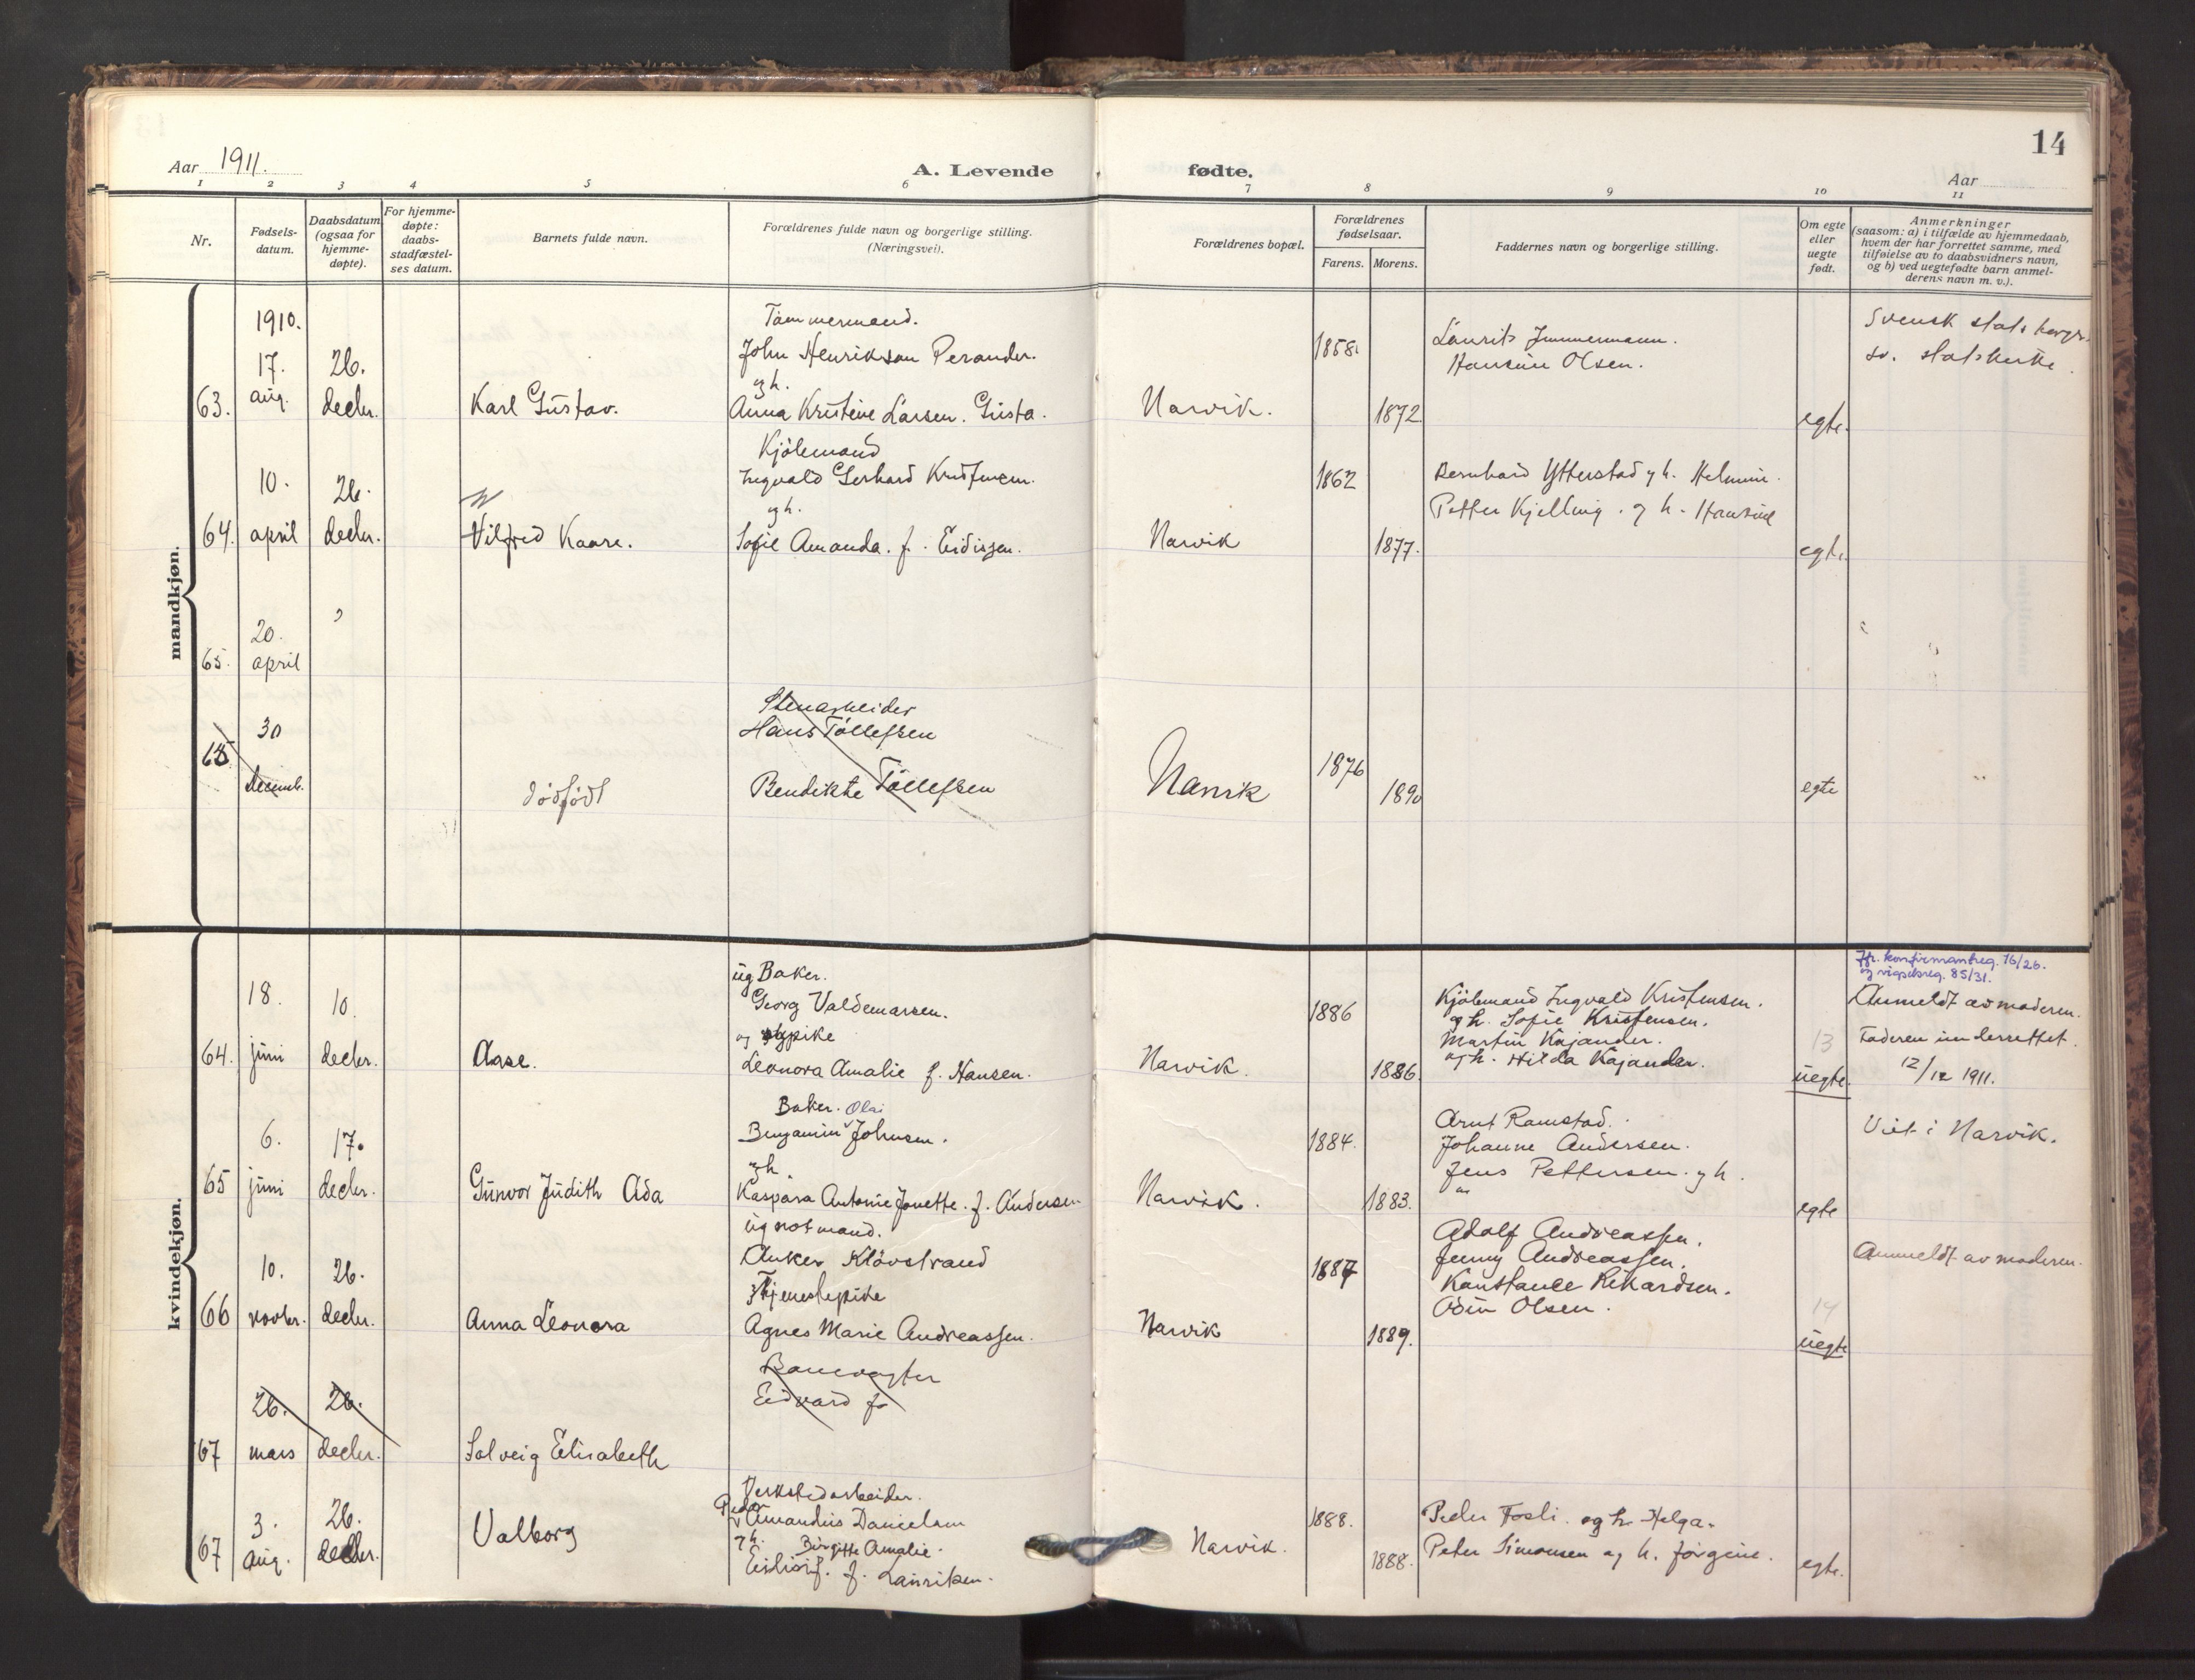 14
Aar 1911.
A. Levende fødte.
Aar
1 2 3 4 5 6 7 8 9 10 11
Nr.
Fødsels-
datum.
Daabsdatum
(ogsaa for
hjemme-
døpte).
For hjemme-
døpte:
daabs-
stadfæstel-
ses datum.
Barnets fulde navn.
Forældrenes fulde navn og borgerlige stilling.
(Næringsvei).
Forældrenes bopæl.
Forældrenes
fødselsaar.
Farens. Morens.
Faddernes navn og borgerlige stilling.
Om egte
eller
uegte
født.
Anmerkninger
(saasom: a) i tilfælde av hjemmedaab,
hvem der har forrettet samme, med
tilføielse av to daabsvidners navn,
og b) ved uegtefødte barn anmel-
derens navn m. v.).
mandkjøn.
63.
1910.
17.
aug.
26.
decbr.
Karl Gustav.
Tømmermand.
John Henrikson Perander.
og h.
Anna Kristine Larsen. Gusta.
Narvik.
1858.
1872.
Laurits Jmmermann.
Hansine Olsen.
egte.
Svensk statsborgr.
sv. statskirke.
64.
10.
april
26.
decbr.
W
Vilfred Kaare.
Kjölemand
Ingvald Gerhard Kristensen.
og h.
Sofie Amanda. f. Eidissen.
Narvik
1862
1877.
Bernhard Ytterstad og h. Helmine.
Petter Kjelling. og h. Hansine
egte.
65.
20.
april
65
30
decemb.
dødfødt
Stenarbeider
Hans Tollefsen
Bendikte Tollefsen
Narvik
1876
1890
egte
kvindekjøn.
64.
18.
juni
10.
decbr.
Aase.
ug Baker.
Georg Valdemarsen.
og pike
Leonora Amalie f. Hansen.
Narvik.
1886
1886.
Kjölemand Ingvald Kristensen.
og h. Sofie Kristensen.
Martin Kajander.
og h. Hilda Kajander.
13
uegte.
Jfr. konfirmantreg. 76/26.
og vigselsreg. 85/31.
Anmeldt av moderen.
Faderen underrettet.
12/12 1911.
65
6.
juni
17.
decbr.
Gunvor Judith Ada
Baker. Olai
Benjamin Johnsen.
og h.
Kaspara Antonie Jonette. f. Andersen
Narvik.
1884.
1883.
Arnt Ramstad.
Johanne Andersen.
Jens Pettersen. og h.
egte
Viet i Narvik.
66
10.
novbr.
26.
decbr.
Anna Leonora
ug notmand.
Anker Klövstrand
Tjenestepike
Agnes Marie Andreassen.
Narvik
1887
1889.
Adolf Andreassen.
Jenny Andreassen.
Konstance Rikardsen.
Odin Olsen.
14
uegte
Anmeldt av moderen.
67
26.
mars
26.
decbr.
Solveig Elisabeth
Banevogter
Edvard J
67
3.
aug.
26.
decbr.
Valborg
Verkstedarbeider.
Peder
Amandus Danielsen
og h. Birgitte Amalie.
f. Lauritsen.
Narvik.
1888.
1888.
Peder Fosli. og h. Helga.
Peter Simonsen og h. Jörgine.
egte.